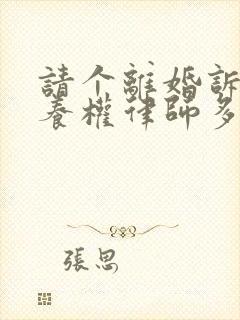 請个離婚訴
養權律師多
張思